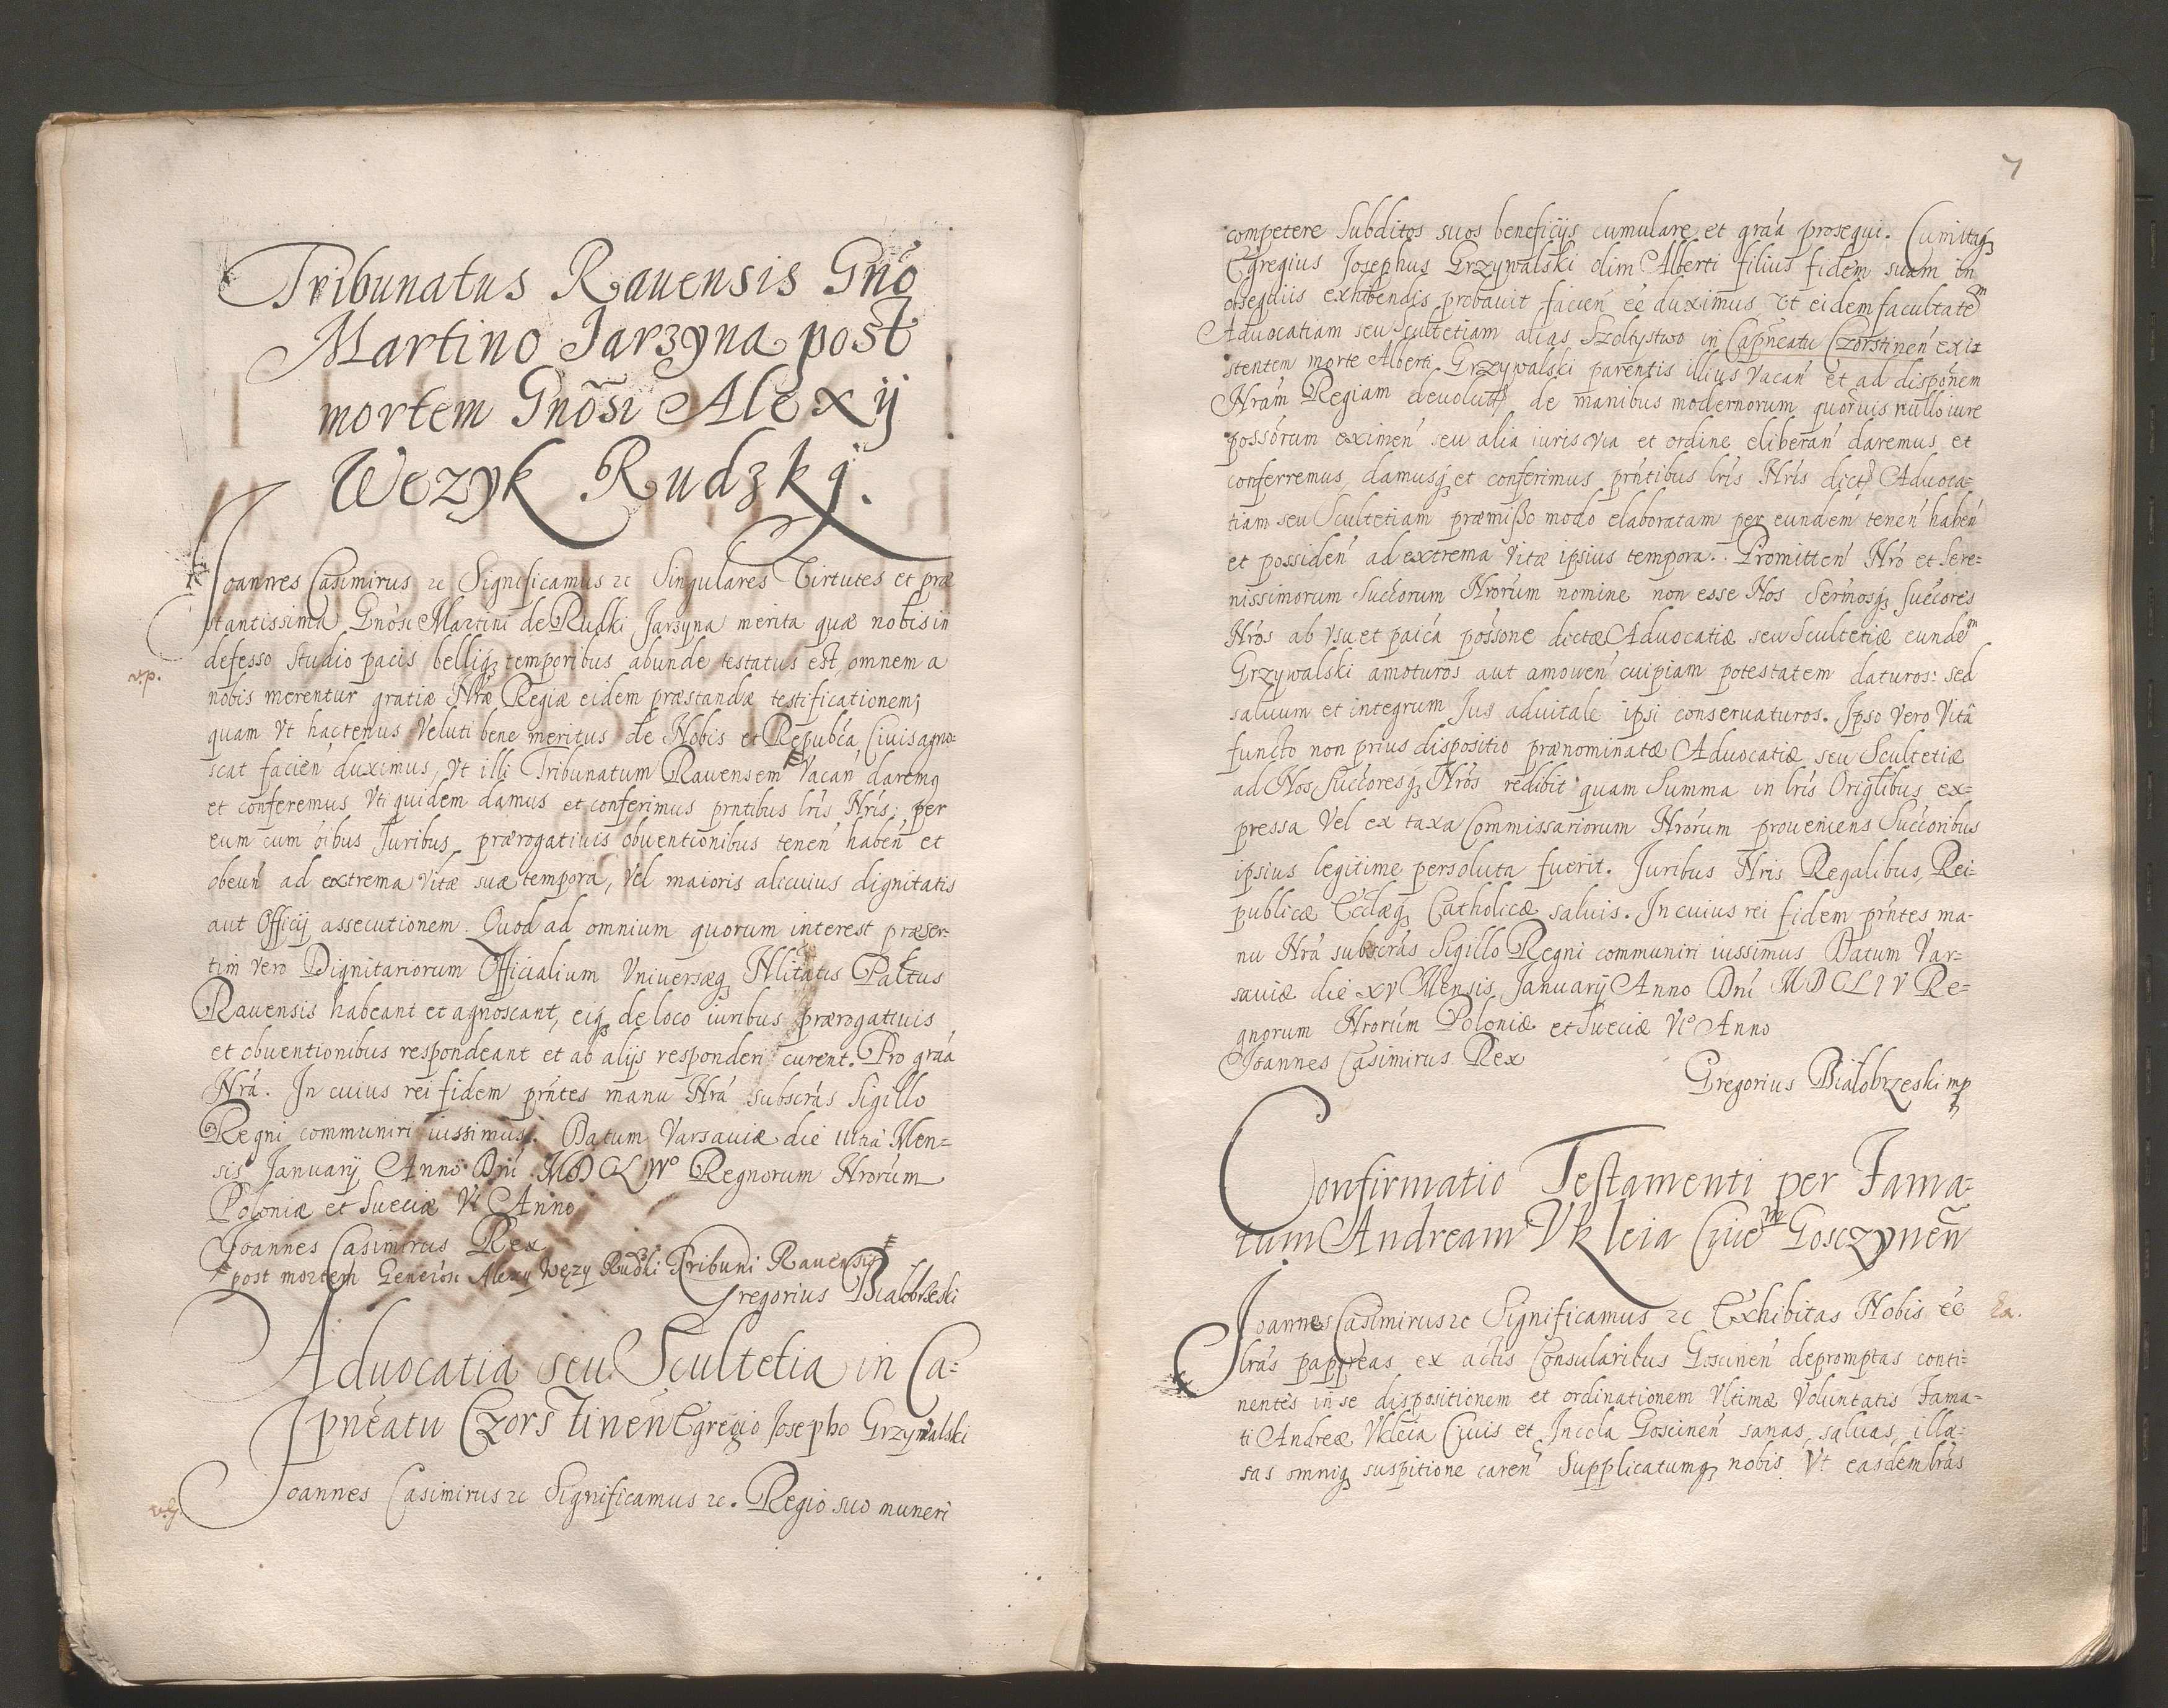 Tribunatus Rauensis Gńo
Martino Jarzyna post
mortem Gnõsi Alexij
Wezyk Rudzkj.
Joannes Casimirus ꝛc Significamus ꝛc Singulares Virtutes et præ
stantissima Gnósi Martini de Rudki Jarzyna merita quæ nobis in
defesso studio pacis, belliqȝ temporibus abunde testatus est, omnem a
v.p.
nobis merentur gratiæ Nræ Regiæ eidem præstandæ testificationem;
quam Vt hactenus Veluti bene meritus de Nobis et Repubća Civis agno-
scat facień duximus, Vt illi Tribunatum Rauensem # Vacań daremq
et conferemus Vti quidem damus et conferimus prntibus lrís Nrís; per
eum cum óibus Juribus, prærogatiuis obuentionibus teneń habeń et
obeuń ad extrema Vitæ suæ tempora, Vel maioris alicuius dignitatis
aut Officij assecutionem. Quod ad omnium quorum interest præser-
tim vero Dignitariorum Officialium Vniversæqȝ Nlitatis Paltus
Rauensis habeant et agnoscant, eiqȝ de loco iuribus prærogatiuis
et obuentionibus respondeant et ab alijs responderi curent. Pro graá
Nrá. In cuius rei fidem prńtes manu Nrá subscrás Sigillo
Regni communiri iussimus. Datum Varsauiæ die Vltrá Men-
sis Januarij Anno Dńi MDCLIVo Regnorum Nrorúm
Poloniæ et Sueciæ Vi Anno
Joannes Casimirus Rex
# post mortem Generósi Alexy Węzy Rudzki Tribuni Rauensis #
Gregorius Białobrzeski
Advocatia seu Scultetia in Ca-
pnéatu Czorstineń Egregio Josepho Grzywalski
v.g.
Joannes Casimirus ꝛc Significamus ꝛc. Regio suo muneri
7
competere Subditos suos beneficijs cumulare et graá prosequi. Cum itaqȝ
Egregius Josephus Grzywalski olim Alberti filius fidem suam in
obsequiis exhibendis probauit facień eé duximus Vt eidem facultatem
Aduocatiam seu Scultetiam alias Szoltystwo in Capneatu Czorstineń exi
stentem morte Alberti Grzywalski parentis illius Vacań et ad dispónem
Nrám Regiam deuolut de manibus modernorum quoruis nullo iure
possórum eximeń seu alia iuris via et ordine eliberań daremus et
conferremus, damusqȝ et conferimus prńtibus lrís Nrís dict Aduoca-
tiam seu Scultetiam præmißo modo elaboratam per eundem teneń habeń
et possideń ad extrema Vitæ ipsius tempora. Promitteń Nró et Sere-
nissimorum Succórum Nrorúm nomine non esse Nos Sermósqȝ Succóres
Nrós ab vsu et paicá possóne dictæ Aduocatiæ seu Scultetiæ eundem
Grzywalski amoturos aut amoueń cuipiam potestatem daturos: sed
saluum et integrum Jus aduitale ipsi conseruaturos. Ipso vero Vitâ
functo non prius dispositio prænominatæ Aduocatiæ seu Scultetiæ
ad Nos Succóresqȝ Nrós redibit quam Summa in lrís Origlibus ex-
pressa Vel ex taxa Commissariorum Nrórum proueniens Succóribus
ipsius legitime persoluta fuerit. Juribus Nris Regalibus, Rei-
publicæ Ecclæqȝ Catholicæ saluis. In cuius rei fidem prńtes ma-
nu Nrá subscrás Sigillo Regni communiri iussimus Datum Var-
sauiæ die XV Mensis Januarij Anno Dńi MDCLIV Re-
gnorum Nrorúm Poloniæ et Sueciæ VIo Anno
Joannes Casimirus Rex
Gregorius Białobrzeski mp
Confirmatio Testamenti per Fama-
tum Andream Vkleia Ciuem Gosczyneñ
Joannes Casimirus ꝛc Significamus ꝛc Exhibitas Nobis eé
Ea.
lrás papyreas ex actis Consularibus Goscineń depromptas conti-
nentes in se dispositionem et ordinationem Vltimæ Voluntatis Fama-
ti Andreæ Vkleia Ciuis et Incola Goscineń sanas, saluas, illæ-
sas omniqȝ suspitione careń Supplicatumqȝ nobis Vt easdem lrás